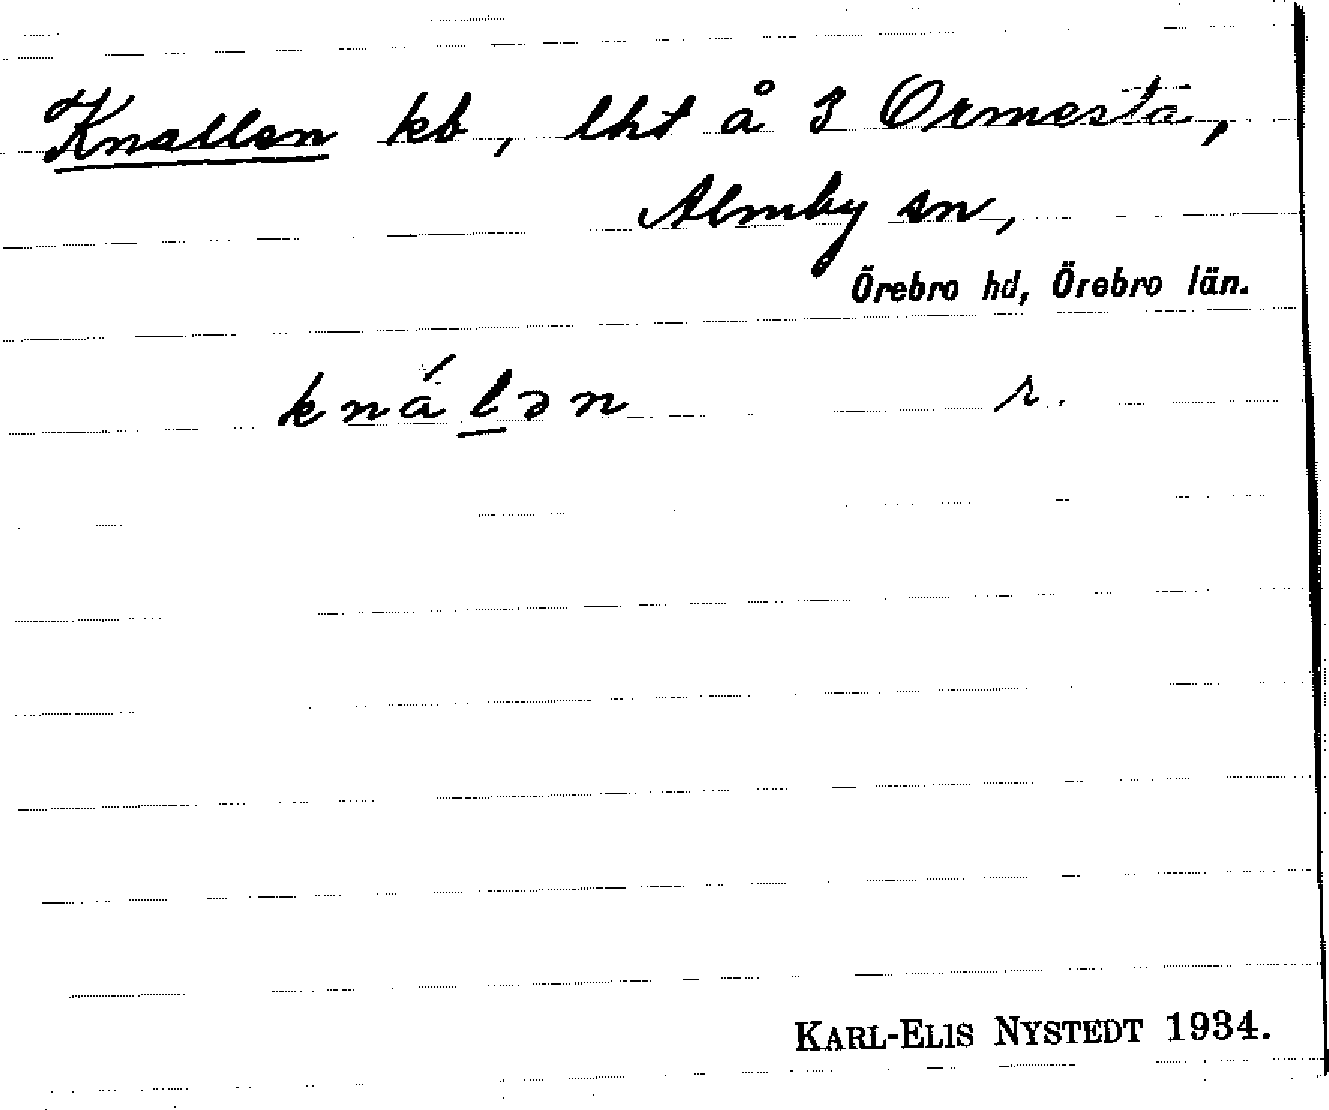 Knallen kb, lht å 3 Ormesta,
Almby sn,
Örebro hd, Örebro län.
knálən r.
KARL-ELIS NYSTEDT 1934.